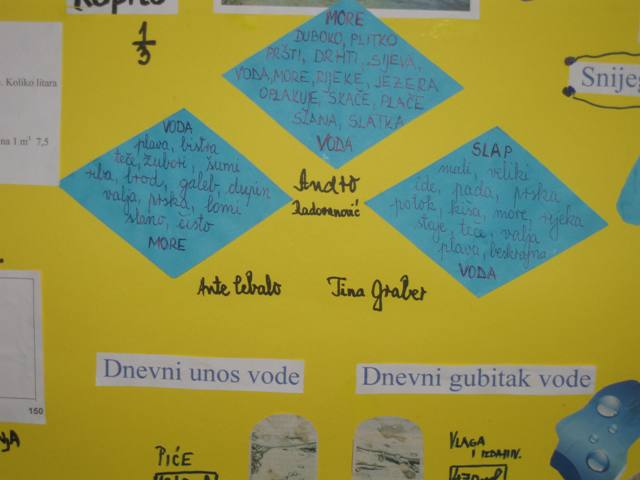 Kopno
1
3
e. Koliko litara
na 1 m² 7,5
Snijeg
MORE
DUBOKO, PLITKO
PRŠTI, DRHTI, SIJEVA,
VODA, MORE, RIJEKE, JEZERA
OPLAKUJE, SKAČE, PLAČE
SLANA, SLATKA
VODA
VODA
plava, bistra
teče, žubori, šumi
riba, brod, galeb, dupin
valja, prska, lomi
slano, čisto
MORE
SLAP
mali, veliki
ide, pada, prska
potok, kiša, more, rijeka
staje, teče, valja
plava, beskrajna
VODA
Andro
Radovanović
Ante Cebalo
Tina Graber
Dnevni unos vode
Dnevni gubitak vode
150
PIĆE
VLAGA